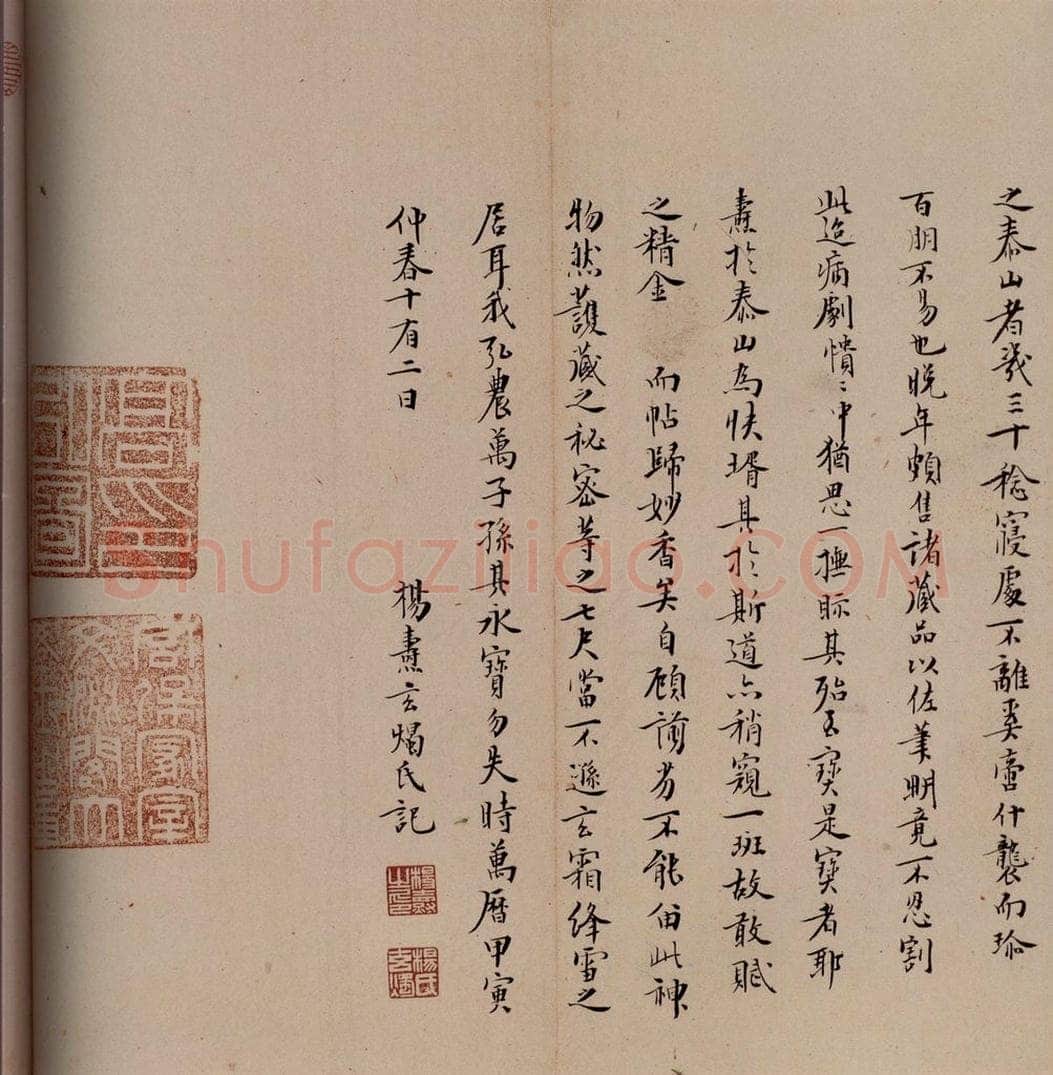 之泰山者幾三十稔寢處不離奚啻什襲而瑜
百朋不易也晚年頗售諸藏品以佐菫明竟不忍割
此迨病劇憒〻中猶思一撫眎其殆吾寳是寳者耶
燾於泰山為快壻其於斯道亦稍窺一班故敢賦
之精金 而帖歸妙香矣自顧謭劣不能留此神
物然護藏之秘密等之七尺當不遜玄霜絳雪之
居耳我弘農萬子孫其永寶勿失時萬曆甲寅
仲春十有二日
楊燾玄燭氏記
Shufaziliao.COM